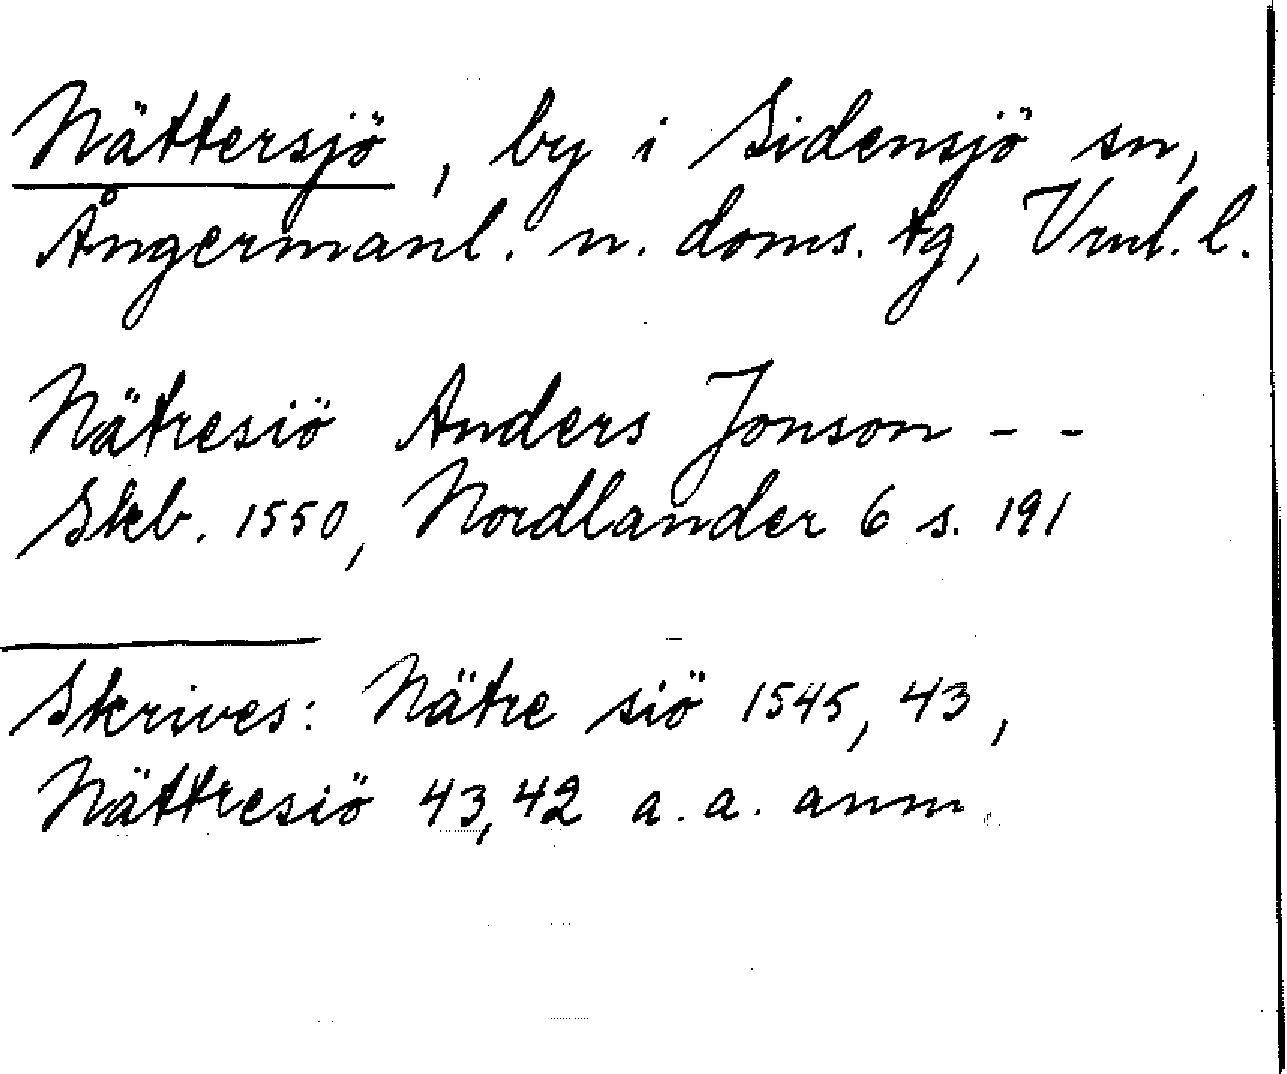 Nättersjö, by i Sidensjö sn,
Ångermanl. n. doms. tg, Vrnl. l.
Nätresiö Anders Jonson - -
Skb. 1550, Nordlander 6 s. 191
Skrives: Nätre siö 1545, 43,
Nättresiö 43, 42 a. a. anm.